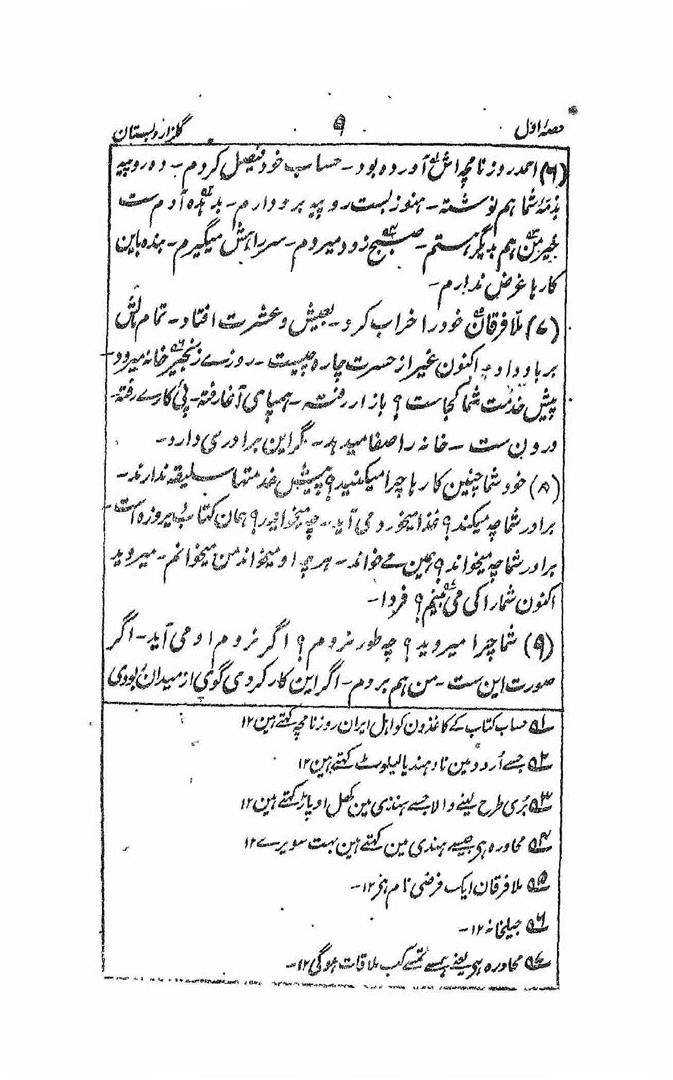 حصۂ اوّل ۹ گلزار دبستان
(۶) احمد روزنامچہ اش آوردہ بود۔ حساب خود فیصل کردم۔ دہ روپیہ
بذمۂ شما ہم نوشتہ۔ ہنوز بست روپیہ بر و دارم۔ بدہ آدم ست
خیر من ہم بدگیر ہستم۔ صبح زود میروم۔ سر راہش میگیرم۔ بندہ باین
کارہا غرض ندارم۔
(۷) ملا فرقان خود را خراب کرد۔ بعیش و عشرت افتاد۔ تمام مالش
برباد داد۔ اکنون غیر از حسرت چارہ چیست۔ روزے زنجیر خانہ میرود
پیش خدمت شما کجاست؟ بازار رفتہ۔ ہمپاہی آغا رفتہ۔ پئ کارے رفتہ۔
درون ست۔ خانہ را صفا میدہد۔ مگر این برادری دارد۔
(۸) خود شما چنین کارہا چرا میکنید؟ پیش خدمتہا سلیقہ ندارند۔
برادر شما چہ میکند؟ غذا میخورد می آید۔ چہ میخواند؟ ہمان کتاب پیروزہ است۔
برادر شما چہ میخواند؟ ہمین مے خواند۔ ہر چہ او میخواند من میخوانم۔ میروید
اکنون شما را کی می بینم؟ فردا۔
(۹) شما چرا میروید؟ چہ طور نروم؟ اگر نروم او می آید۔ اگر
صورت این ست۔ من ہم بروم۔ اگر این کار کردی گوی از میدان ربودی
۱؎ حساب کتاب کے کاغذون کو اہل ایران روزنامچہ کہتے ہین ۱۲
۲؎ جسے اُردو مین نادہند یا لیلوٹ کہتے ہین ۱۲
۳؎ بُری طرح لینے والا جسے ہندی مین کھل اوپاڑ کہتے ہین ۱۲
۴؎ محاورہ ہی جسے ہندی مین کہتے ہین بہت سویرے ۱۲
۵؎ ملا فرقان ایک فرضی نام ہی ۱۲۔
۶؎ جیلخانہ ۱۲۔
۷؎ محاورہ ہی یعنے ہمسے تمسے کب ملاقات ہوگی ۱۲۔